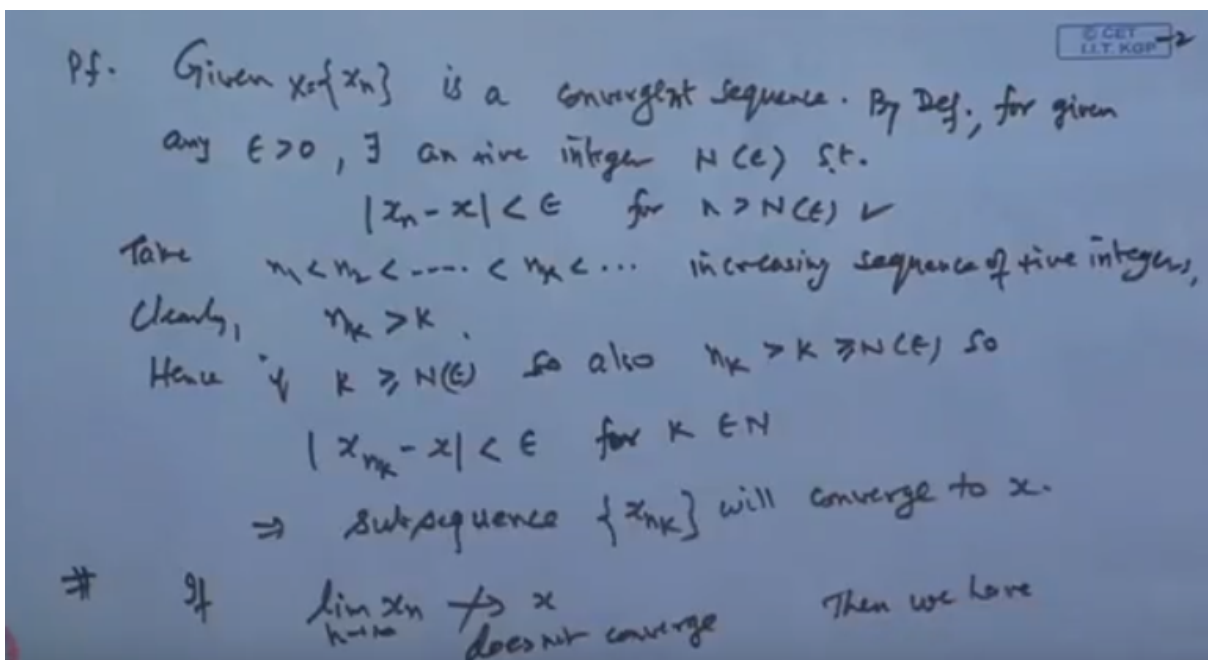 © CET
I.I.T. KGP -2
Pf. Given x={xn} is a convergent sequence. By Def., for given
any ϵ>0, ∃ an +ive integer N(ϵ) s.t.
|xn - x| < ϵ for n > N(ϵ) ✓
Take n1 < n2 < ---- < nk < ... increasing sequence of +ive integers,
Clearly, nk > k.
Hence if k ≥ N(ϵ) so also nk > k ≥ N(ϵ) so
|xnk - x| < ϵ for k ∈ N
⇒ subsequence {xnk} will converge to x.
# If lim xn ↛ x Then we have
n→∞ does not converge